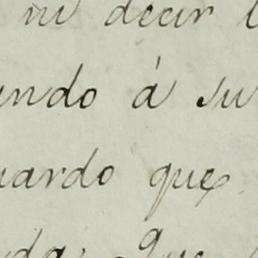 ni decir
ndo á su
uardo que
da; Que